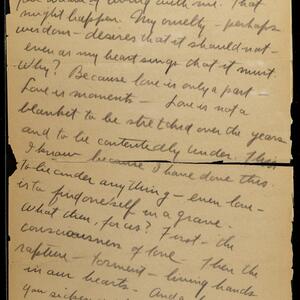 of living with me. That
might happen. My cruelty - perhaps
wisdom - desires that it should not -
even as my heart sings that it must.
Why? Because love is only a part
Love is moments - Love is not a
blanket to be stretched over the years
and to be contentedly under. This
I know because I have done this.
To be under anything - even love -
is to find oneself in a grave.
What then, forces? First - the
consciousness of love. Then the
rapture - torment - living hands
in our hearts. And
you sicken